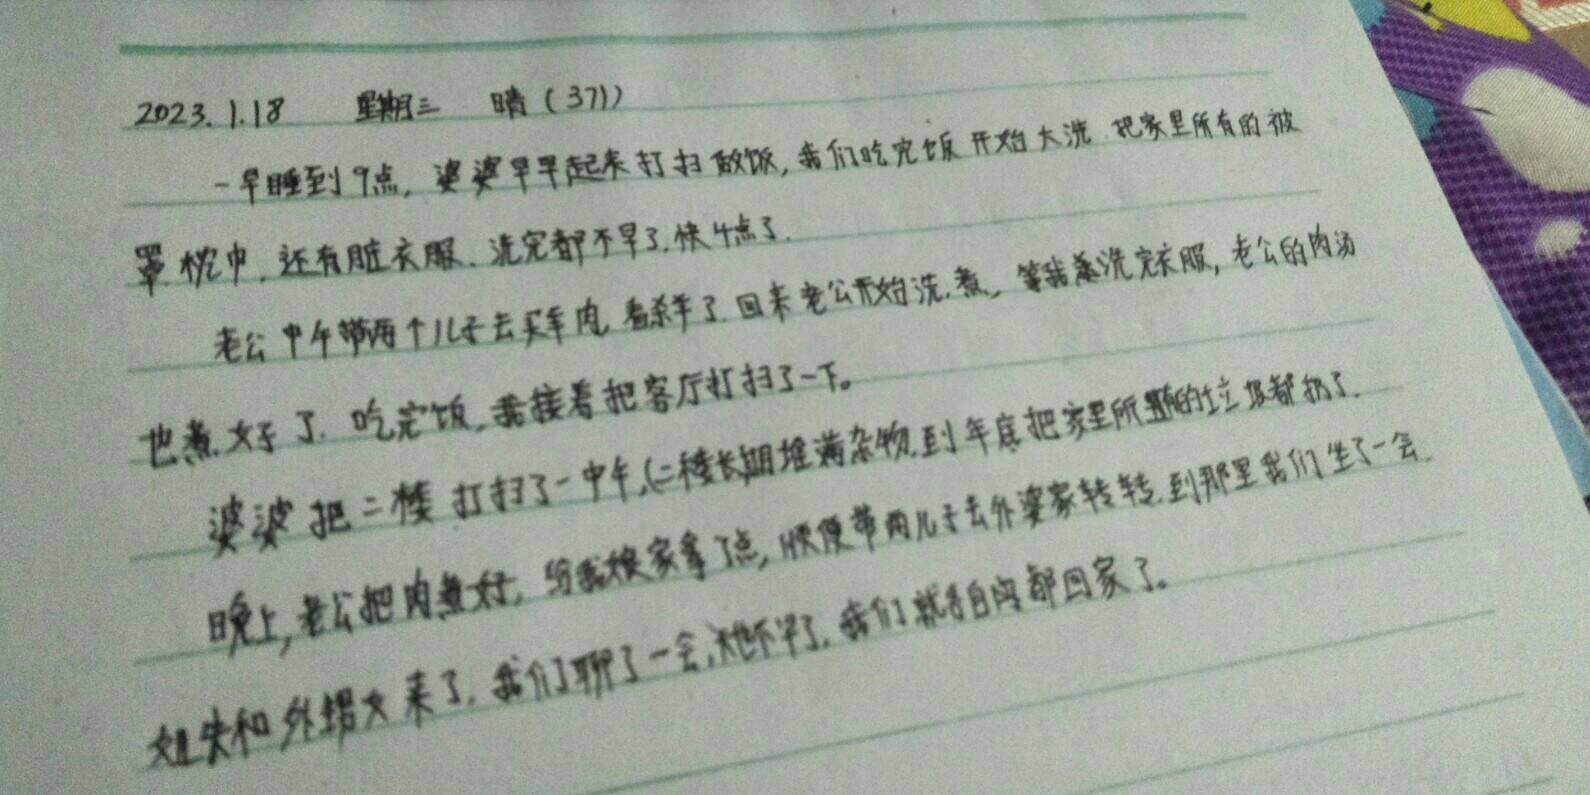 2023.1.18 星期三 晴（371）
一早睡到9点，婆婆早早起来打扫做饭，我们吃完饭开始大洗.把家里所有的被
罩.枕巾.还有脏衣服、洗完都不早了.快4点了.
老公中午带两个儿子去买羊肉,看杀羊了.回来老公开始洗.煮、等我洗完衣服，老公的肉汤
也煮好了.吃完饭,我接着把客厅打扫了一下。
婆婆把二楼打扫了一中午,(二楼长期堆满杂物.到年底把家里所有的垃圾都扔了.
晚上,老公把肉煮好，给我娘家拿了点，顺便带两儿子去外婆家转转.到那里我们坐了一会.
姐夫和外甥女来了.我们聊了一会,天也不早了.我们就各自都回家了。